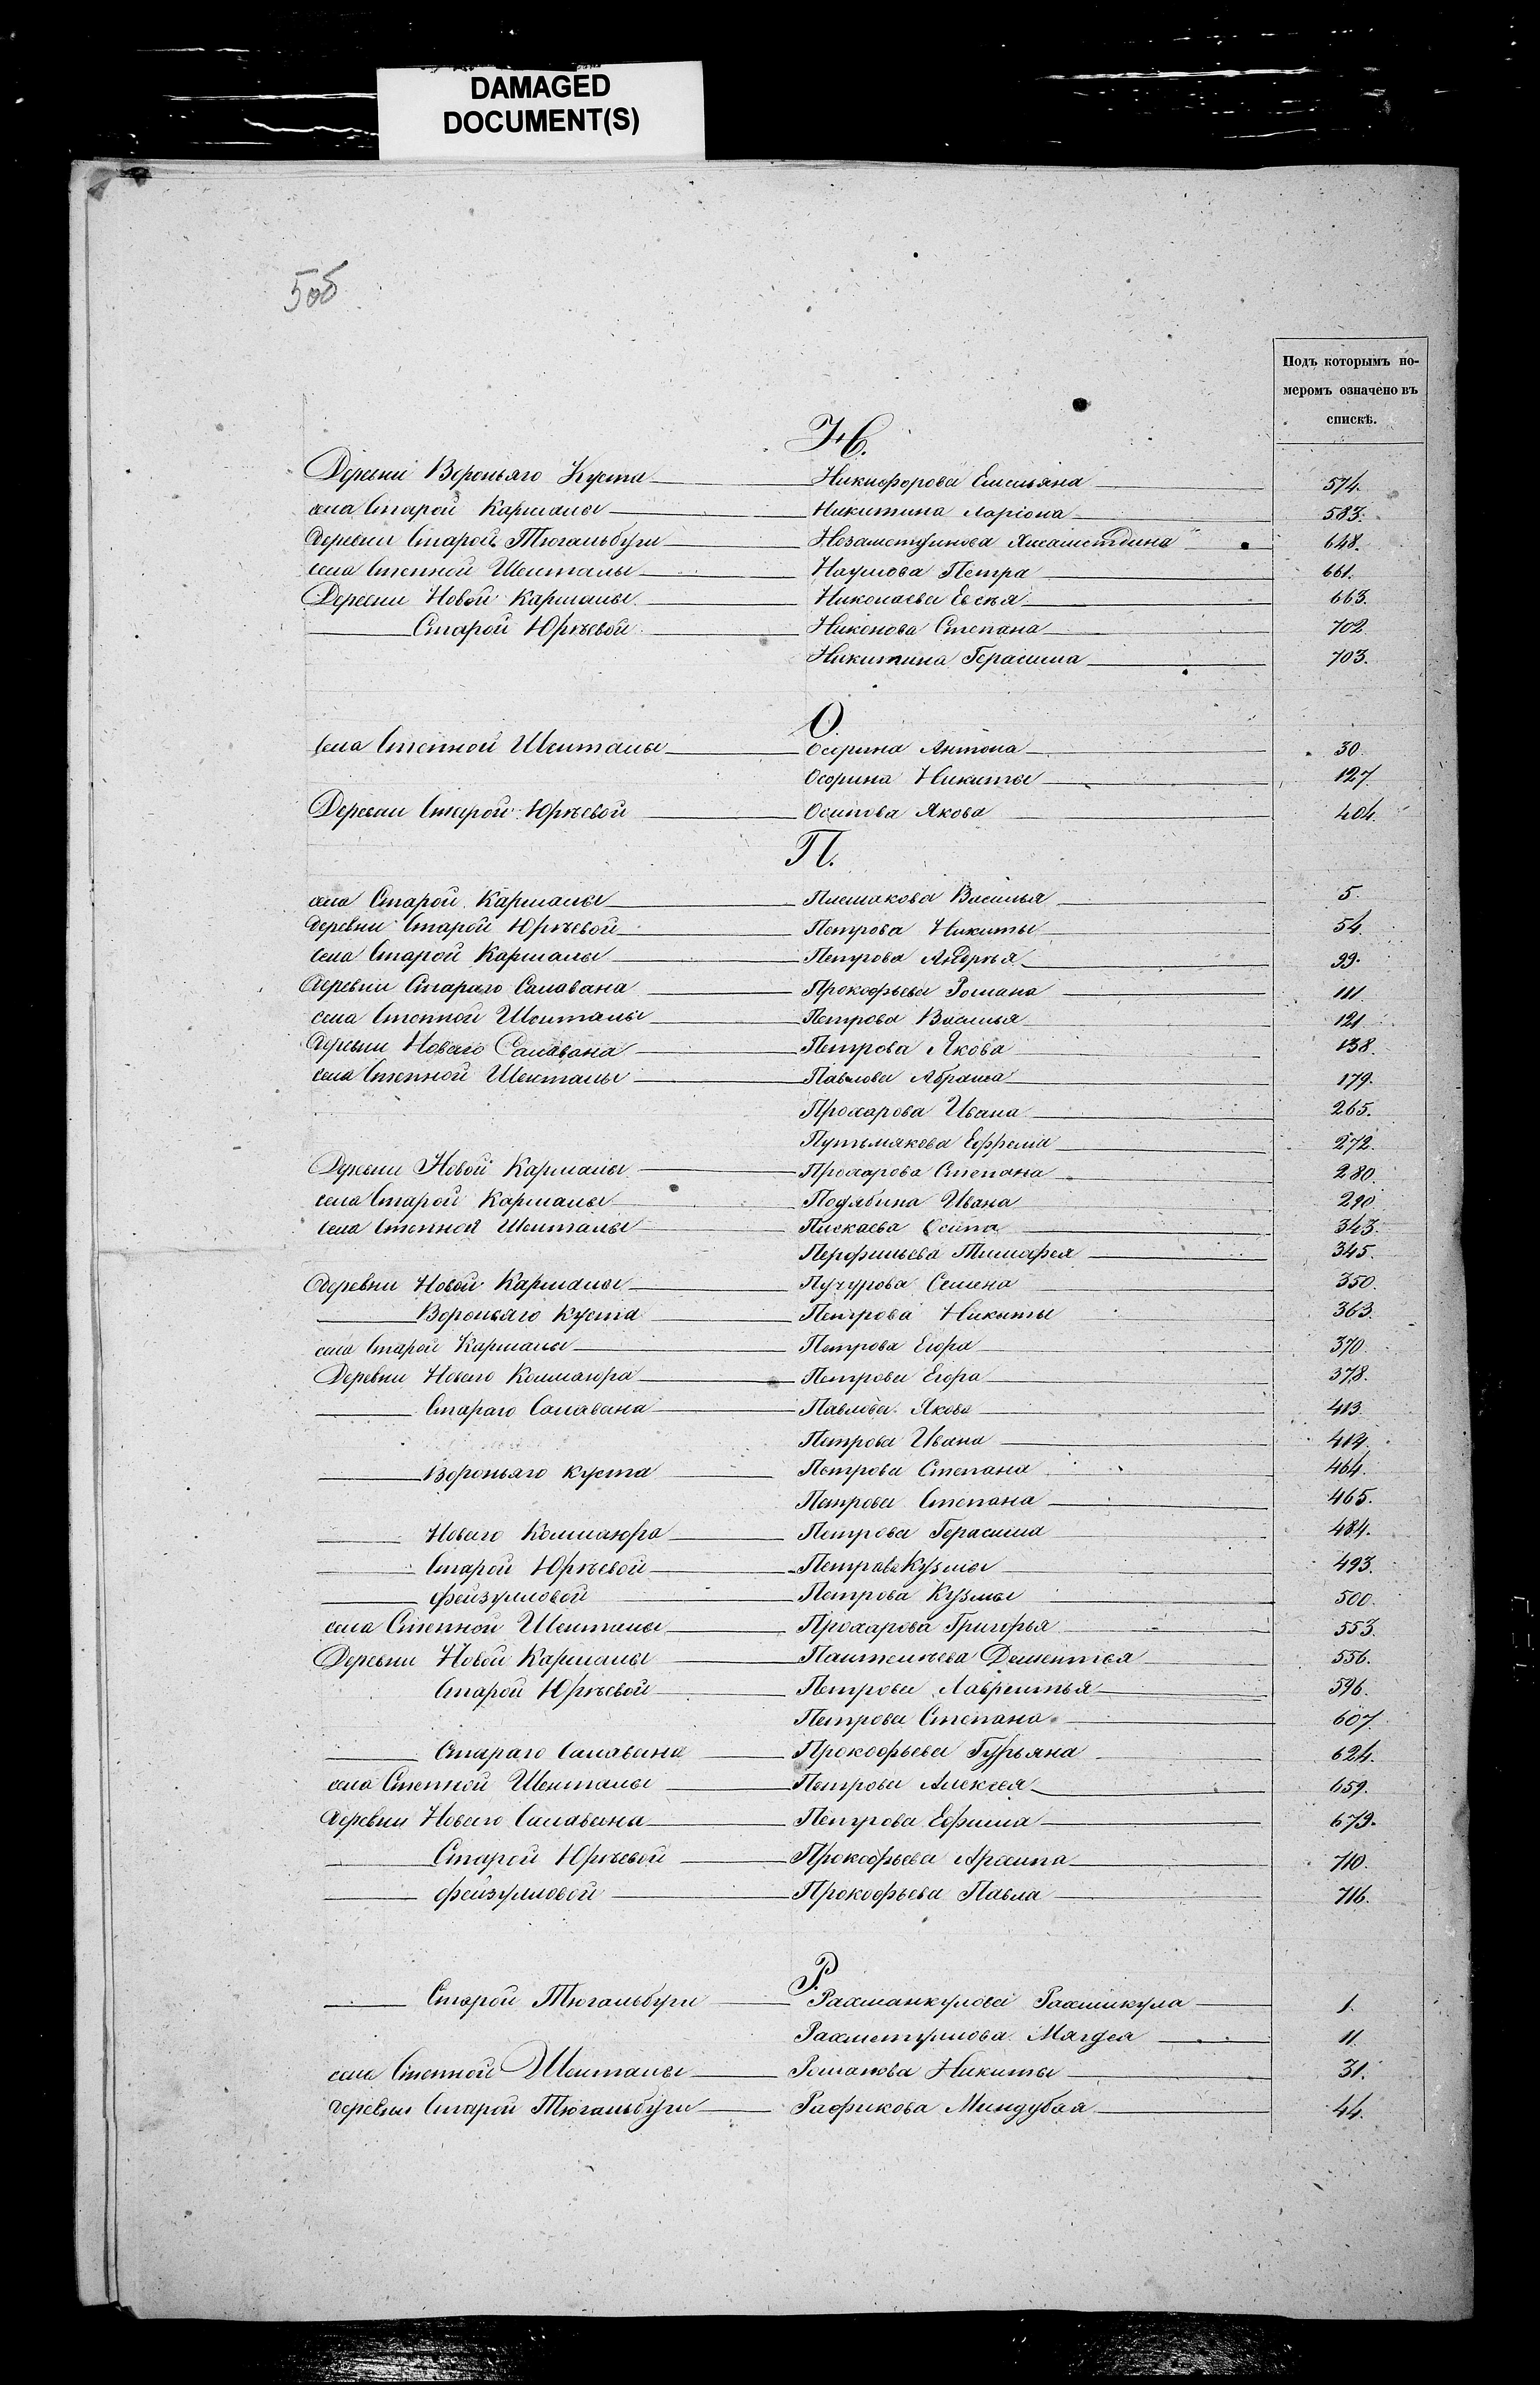 DAMAGED
DOCUMENT(S)
5об
Подъ которымъ но-
меромъ означено въ
спискѣ.
Н.
Деревни Вороньяго Куста Никифорова Емельяна 574.
села Старой Кармалы Никитина Ларіона 583.
Деревни Старой Тюгальбуги Незаметдинова 648.
села Степной Шенталы Наумова Петра 661.
Деревни Новой Кармалы Николаева Евсѣя 663.
Старой Юрѣевой Никонова Степана 702
Никитина Герасима 703.
О
села Степной Шенталы Осорина Антона 30.
Осорина Никиты 127.
Деревни Старой Юрѣевой Осипова Якова 404.
П.
села Старой Кармалы Плешакова Василья 5.
деревни Старой Юрѣевой Петрова Никиты 54.
села Старой Кармалы Петрова Андрѣя 99.
деревни Стараго Салавана Прокофьева Романа 111
села Степной Шенталы Петрова Василья 121
деревни Новаго Салавана Петрова Якова 138.
села Степной Шенталы Павлова Абрама 179.
Прохарова Ивана 265.
Путьмакова Ефрема 272.
Деревни Новой Кармалы Прохарова Степана 280.
села Старой Кармалы Ивана 290.
села Степной Шенталы Пискаева Осипа 343.
Перфильева Тимафея 345.
деревни Новой Кармалы Пучурова Семена 350.
Вороньяго Куста Петрова Никиты 363.
села Старой Кармалы Петрова Егора 370.
Деревни Новаго Колмаюра Петрова Егора 378.
Стараго Салавана Павлова Якова 413.
Петрова Ивана 414.
Вороньяго куста Петрова Степана 464.
Петрова Степана 465.
Новаго Колмаюра Петрова Герасима 484.
Старой Юрѣевой Петрова Кузмы 493.
Фейзулловой Петрова Кузмы 500.
села Степной Шенталы Прохарова Григорья 553.
Деревни Новой Кармалы Пантелѣева Дементья 556.
Старой Юрѣевой Петрова Лаврентья 596.
Петрова Степана 607.
Стараго Салавана Прокофьева Гурьяна 624.
села Степной Шенталы Петрова Алексея 659.
деревни Новаго Салавана Петрова Ефима 679.
Старой Юрѣевой Прокофьева Архипа 710.
Фейзулловой Прокофьева Павла 716.
Р.
Старой Тюгальбуги Рахманкулова Рахмикула 1.
Рахметуллова Магдея 11.
села Степной Шенталы Романова Никиты 31.
деревни Старой Тюгальбуги Рафикова Миндубая 44.